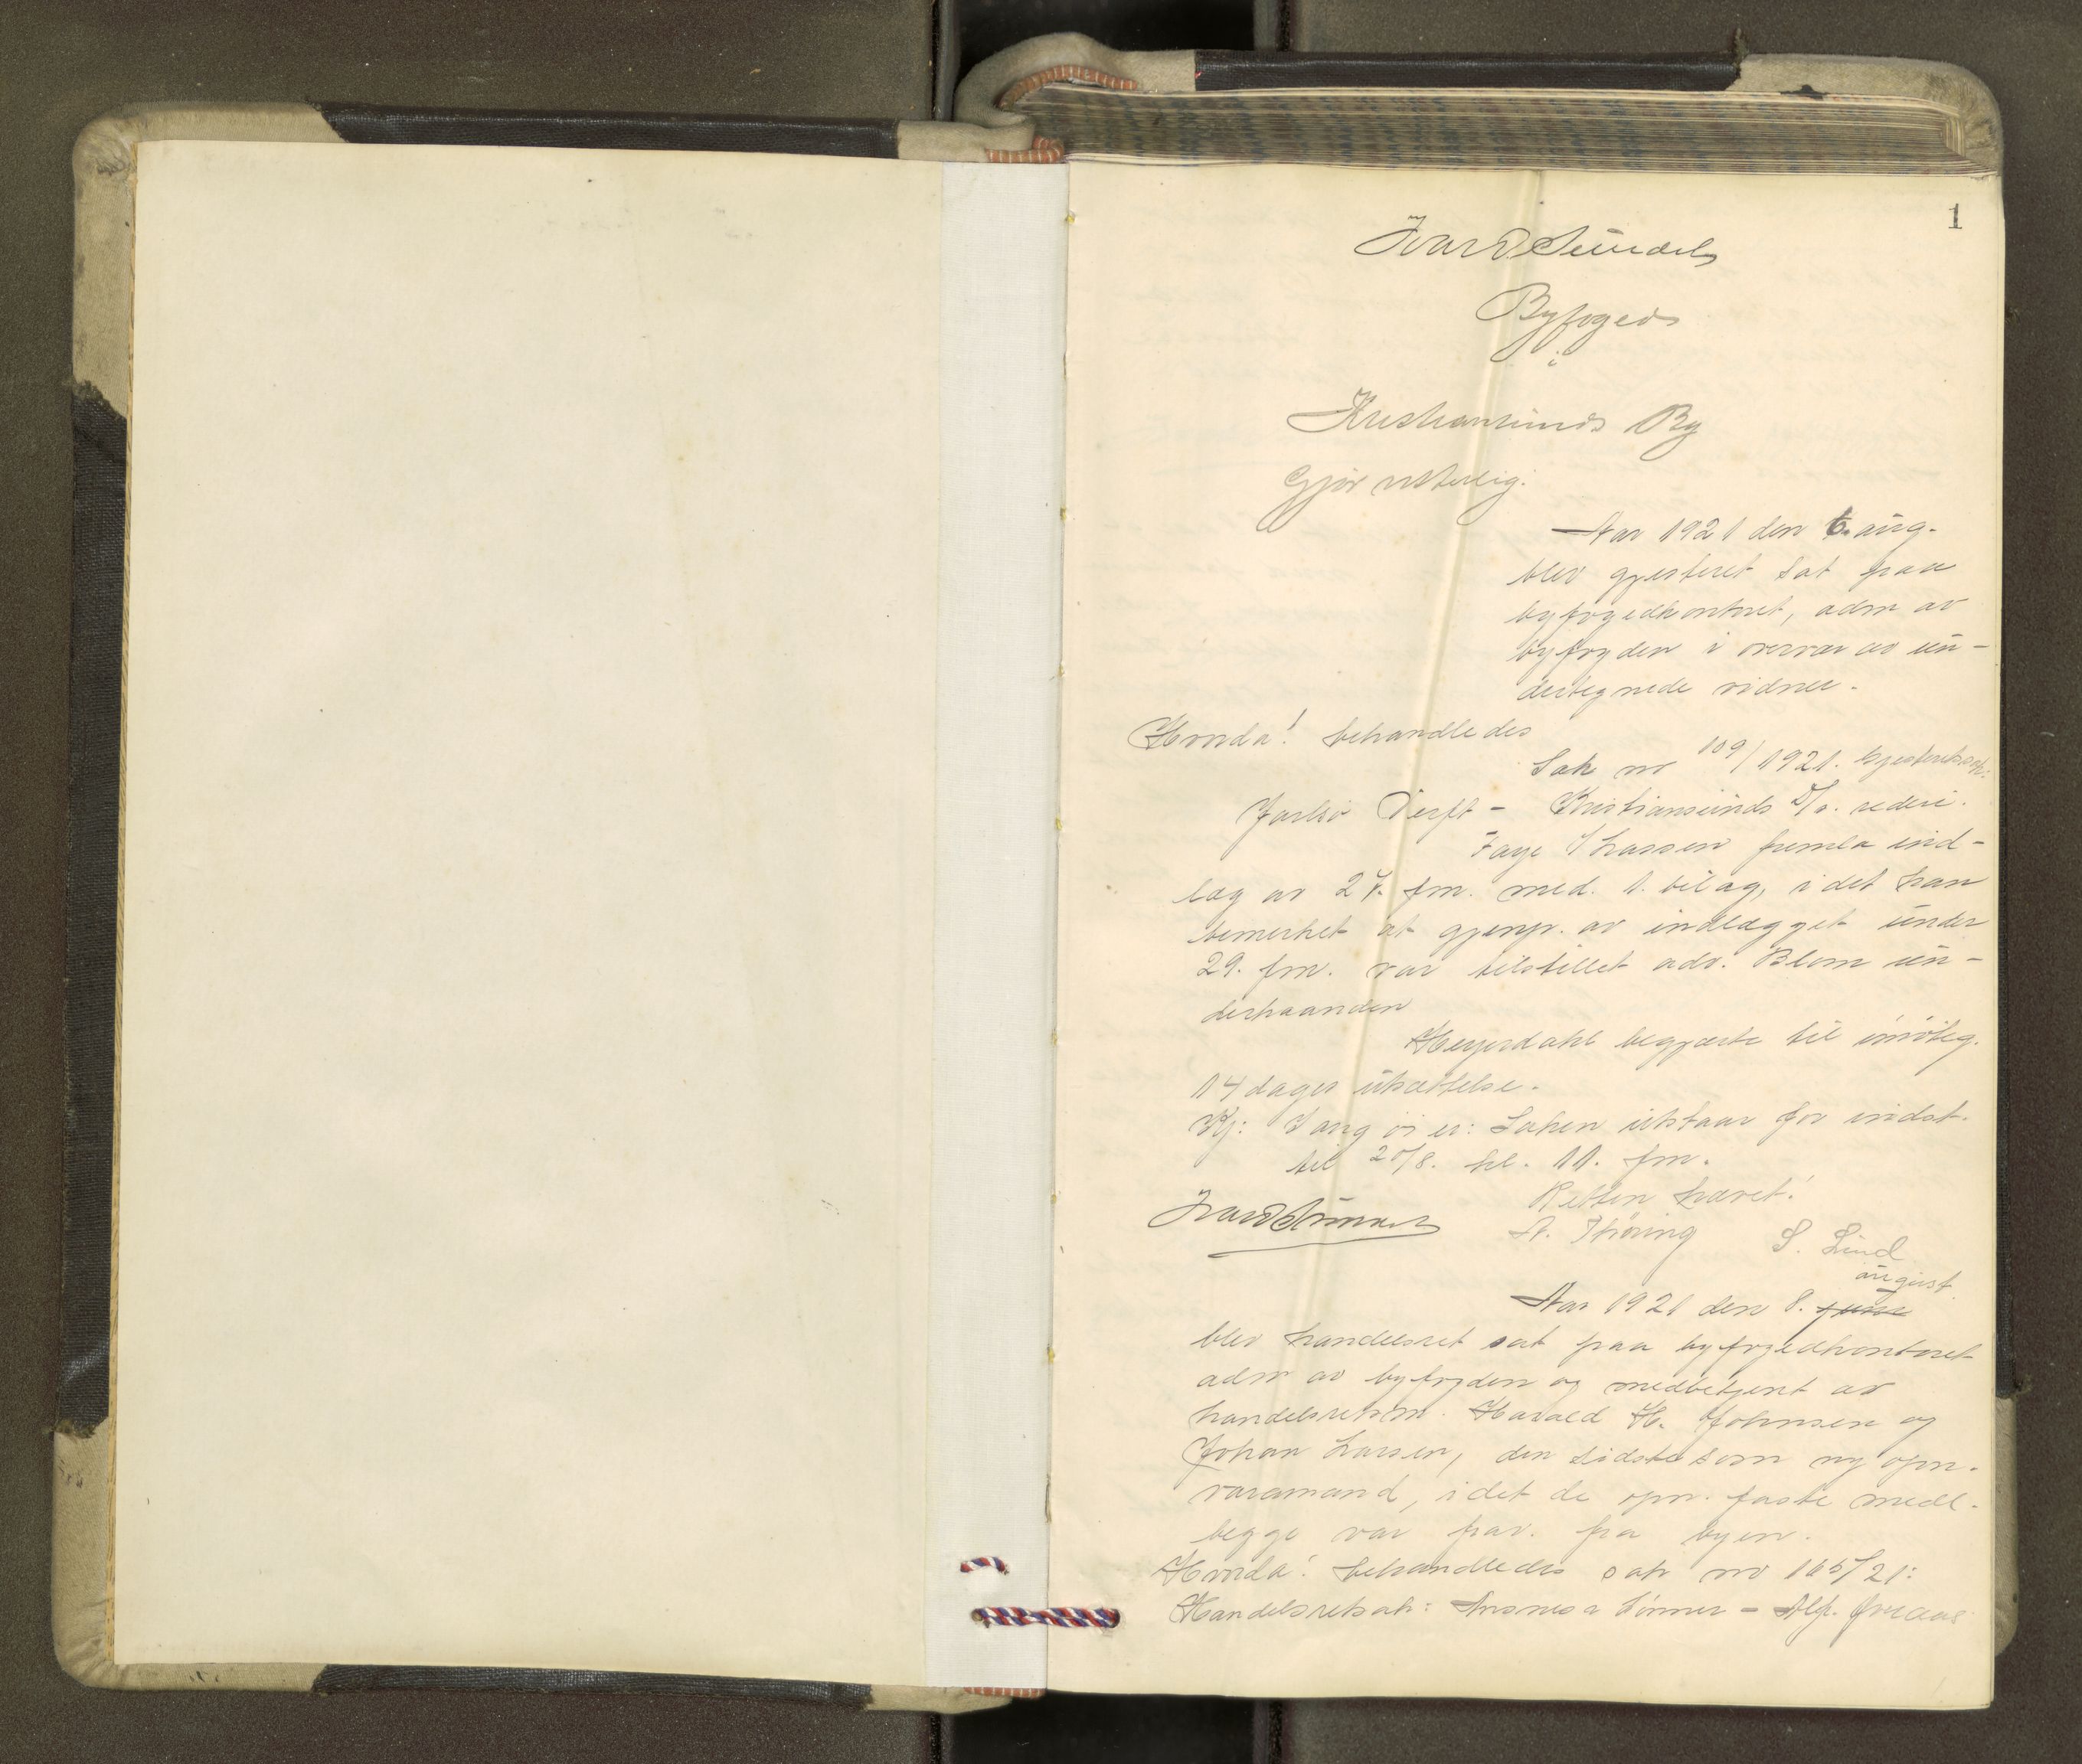 1
Byfoged
i
Kristiansunds By
Gjør vitterlig:
Aar 1921 den 6. aug.
blev gjesteret sat paa
byfogedkontoret, adm av
byfogden i overvær av un-
dertegnede vidner.
Hvorda! behandledes
Sak nr 109/1921. Gjesteretssak:
Jarlsø Verft - Kristiansunds D/s. rederi.
Faye Thassen fremla ind-
læg av 27. fm. med 1. bilag, i det han
bemerket at gjenp. av indlægget under
29. fm. var tilstillet adv. Blom un-
derhaanden
Heyerdahl begjærte til imøteg.
14 dages utsættelse.
Kj: Saken utstaar for indst.
til 20/8. kl. 11. fm.
Retten hævet!
A. Thøring S. Lind
august
Aar 1921 den 8. juni
blev handelsret sat paa byfogedkontoret
adm av byfogden og medbetjent av
handelsretsm. Harald H. Johnsen og
Johan Larsen, den sidste som ny opn.
varamand, i det de opn. faste medl.
begge var frav. fra byen.
Hvorda! behandledes sak nr 165/21:
Handelsretsak: Sønner - Alf.